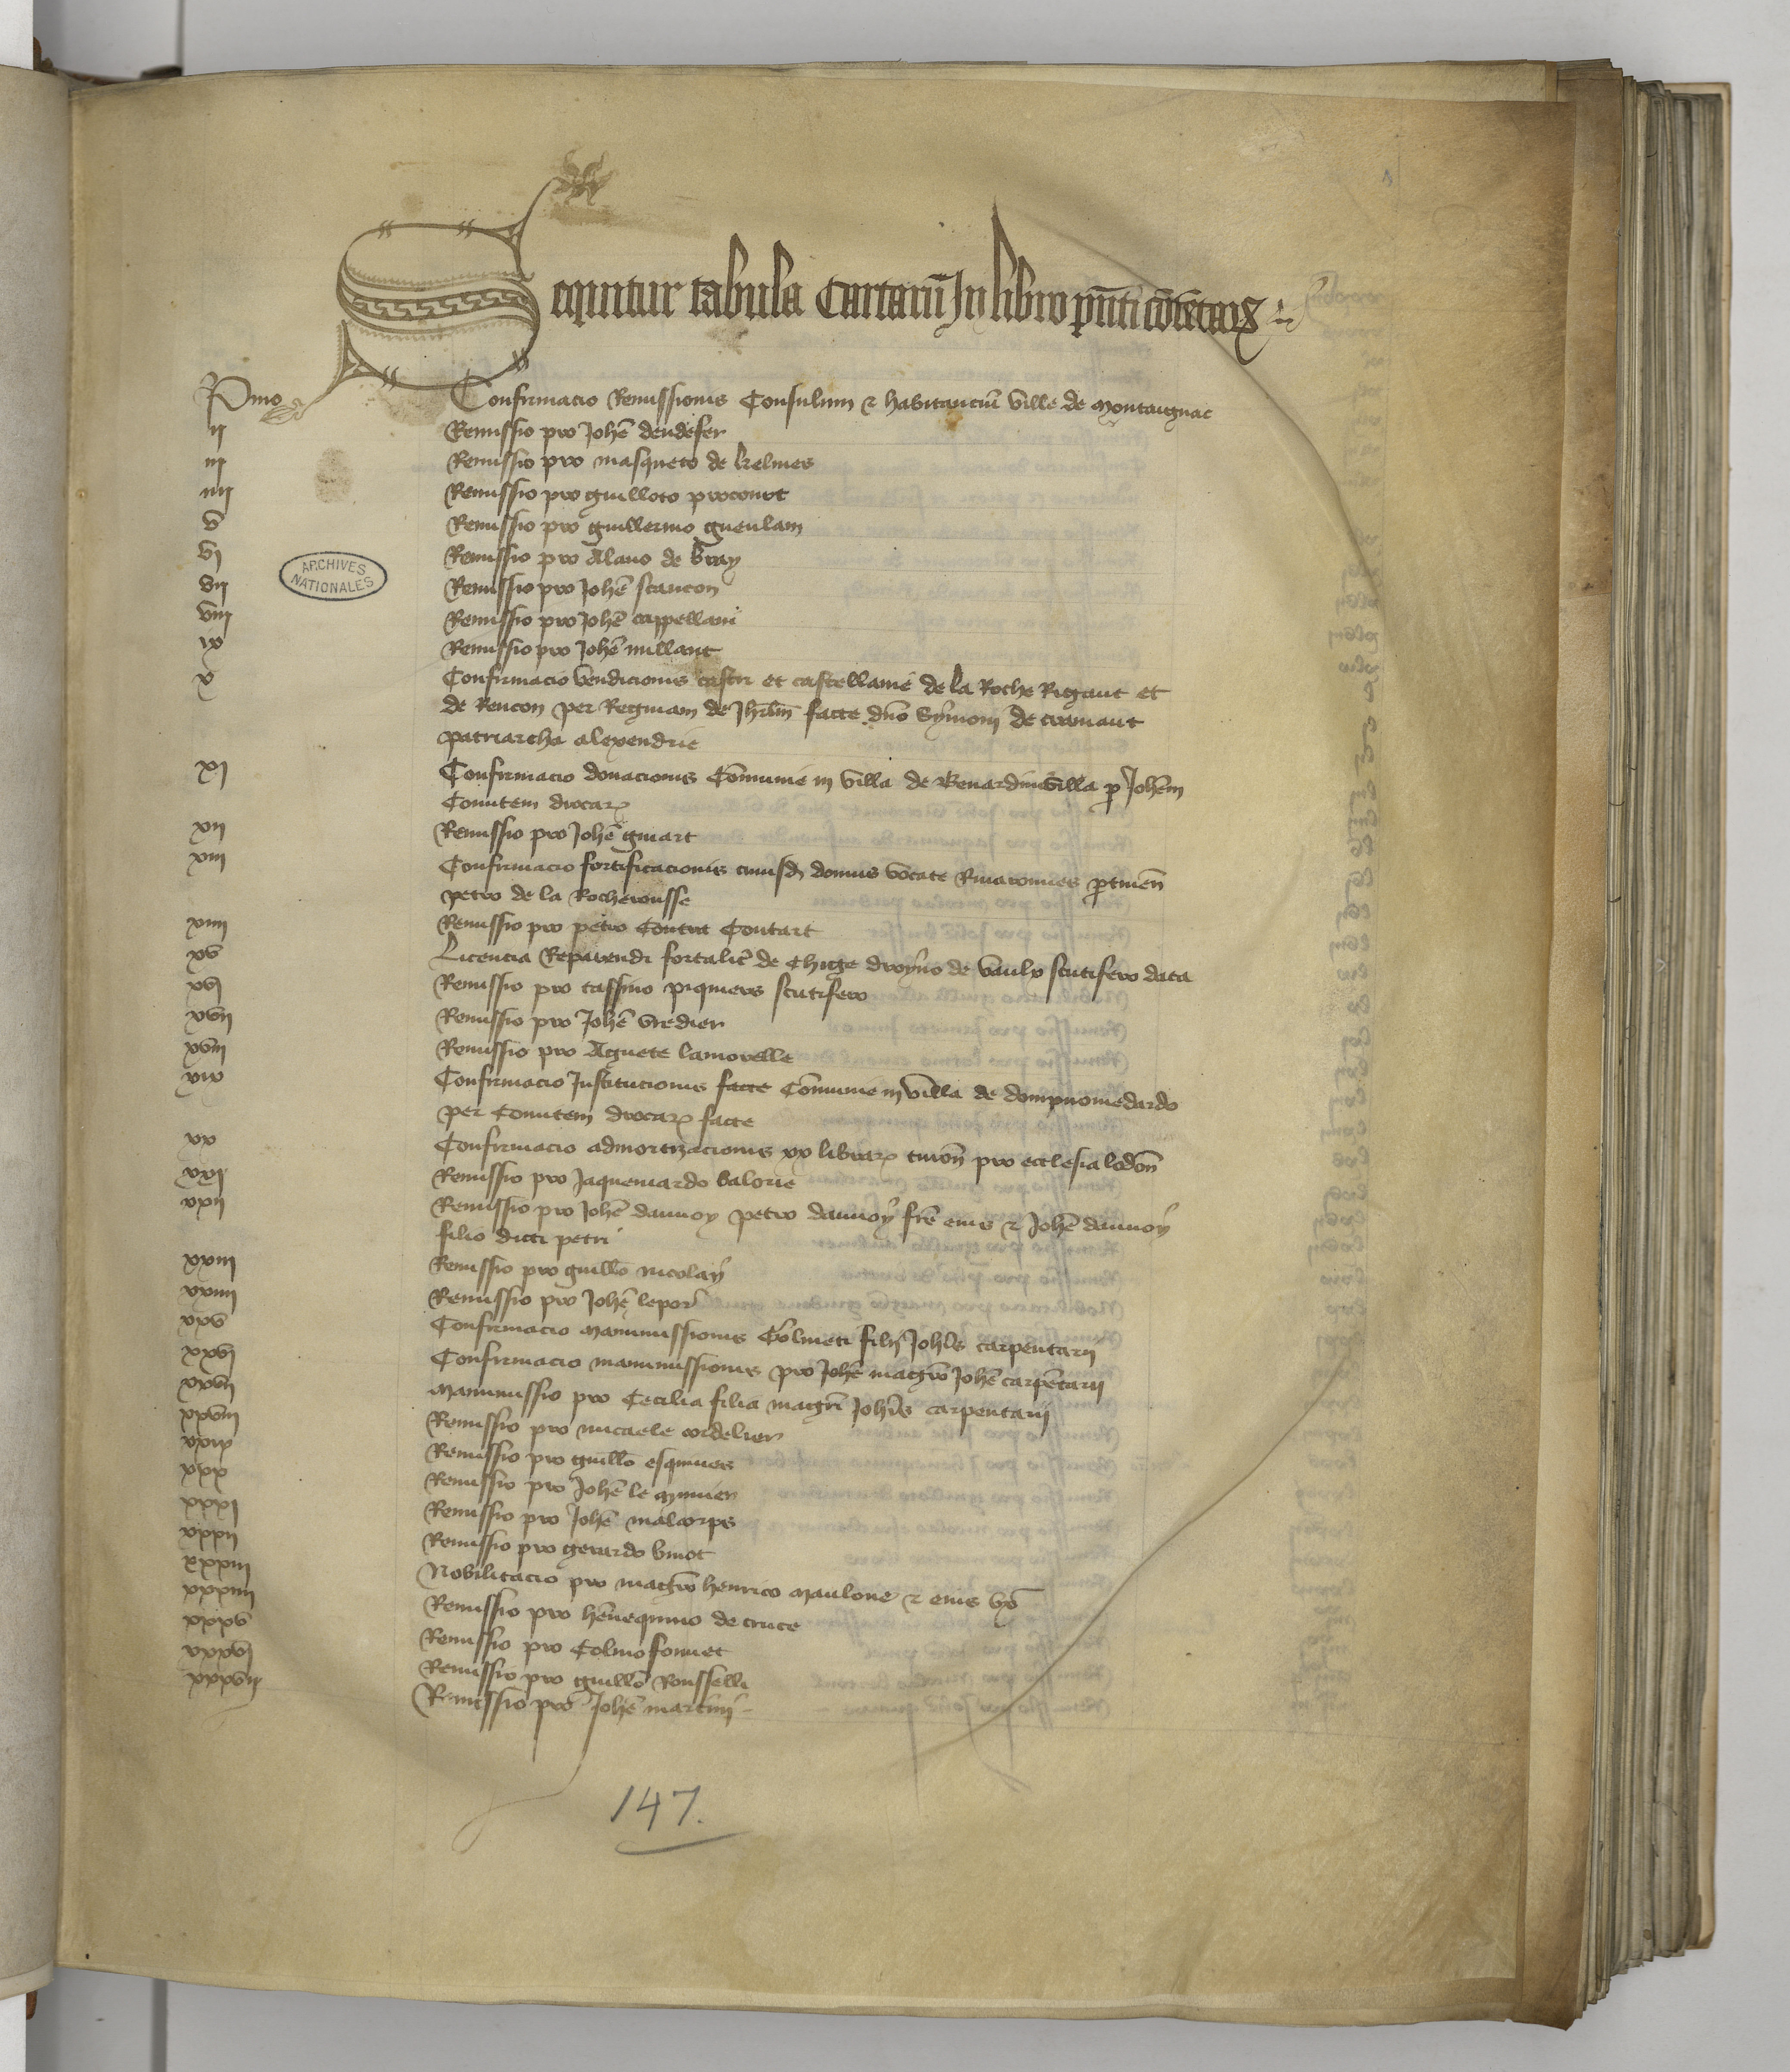 Sequntur tabula Cartarū In libro pn̄ti cōtētarꝝ
Pmo Confirmacio Remissionis Consulum ⁊ habitanciū ville de Montaignac
ii Remissio pro Johē deudefer
iii Remissio pro masqueto de helmes
iiii Remissio pro guilloto proconot
v Remissio pro guillermo gueulam
vi Remissio pro Alano de bray
vii Remissio pro Johē stancon
viii Remissio pro Johē cappellani
ix Remissio pro Johē millant
x Confirmacio vendicionis castri et castellanie de la Roche Rigaut et
de Rencon per Reginam de Jhrlm̄ facte dn̄o Symoni de cramaut
patriarcha alexendrie
xi Confirmacio donacionis Cōmunie in villa de Benardinvilla ꝑ Johēm
Comitem drocaꝝ
xii Remissio pro Johē guiart
xiii Confirmacio fortificacionis cuiusd̄ domus vocate ꝑtinēn
petro de la Rocherousse
xiiii Remissio pro petro Contra Contart
xv Licencia Reparendi fortalic̄ de Chige droyno de vaulx scutifero data
xvi Remissio pro tassino piquiers scutifero
xvii Remissio pro Johē vredier
xviii Remissio pro Agnete lamorelle
xix Confirmacio Institucionis facte Cōmunie in villa de dompnomedardo
per Comitem drocaꝝ facte
xx Confirmacio admortizacionis xx libraꝝ turōn pro ecclesia lodōn
xxi Remissio pro Jaquemardo valorie
xxii Remissio pro Johē daunoy petro daunoy frē eius ⁊ Johē daunoy
filio dicti petri
xxiii Remissio pro guillō nicolay
xxiiii Remissio pro Johē lepor
xxv Confirmacio Manumissionis Colineti filii Johīs carpentarii
xxvi Confirmacio manumissionis pro Johē magrō Johē carpētarii
xxvii Manumissio pro Cecilia filia magrī Johīs carpentarii
xxviii Remissio pro micaele cordelier
xxix Remissio pro guillō esquiners
xxx Remissio pro Johē le Munier
xxxi Remissio pro Johē malcorps
xxxii Remissio pro gerardo binot
xxxiii Nobilitacio pro magrō henrico Maulone ⁊ eius vxō
xxxiiii Remissio pro hēnequino de cruce
xxxv Remissio pro Colino fornet
xxxvi Remissio pro guillō Rousselli
xxxvii Remissio pro Johē martini
ARCHIVES
NATIONALES
147.